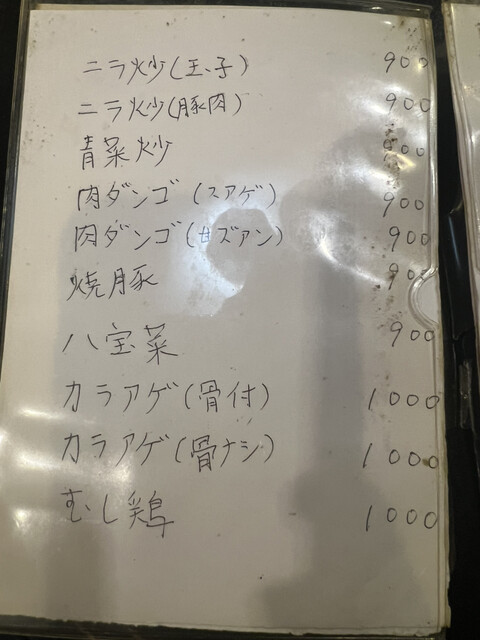 ニラ炒(玉子) 900
ニラ炒(豚肉) 900
青菜炒 900
肉ダンゴ(スアゲ) 900
肉ダンゴ(甘ズアン) 900
焼豚 900
八宝菜 900
カラアゲ(骨付) 1000
カラアゲ(骨ナシ) 1000
むし鶏 1000